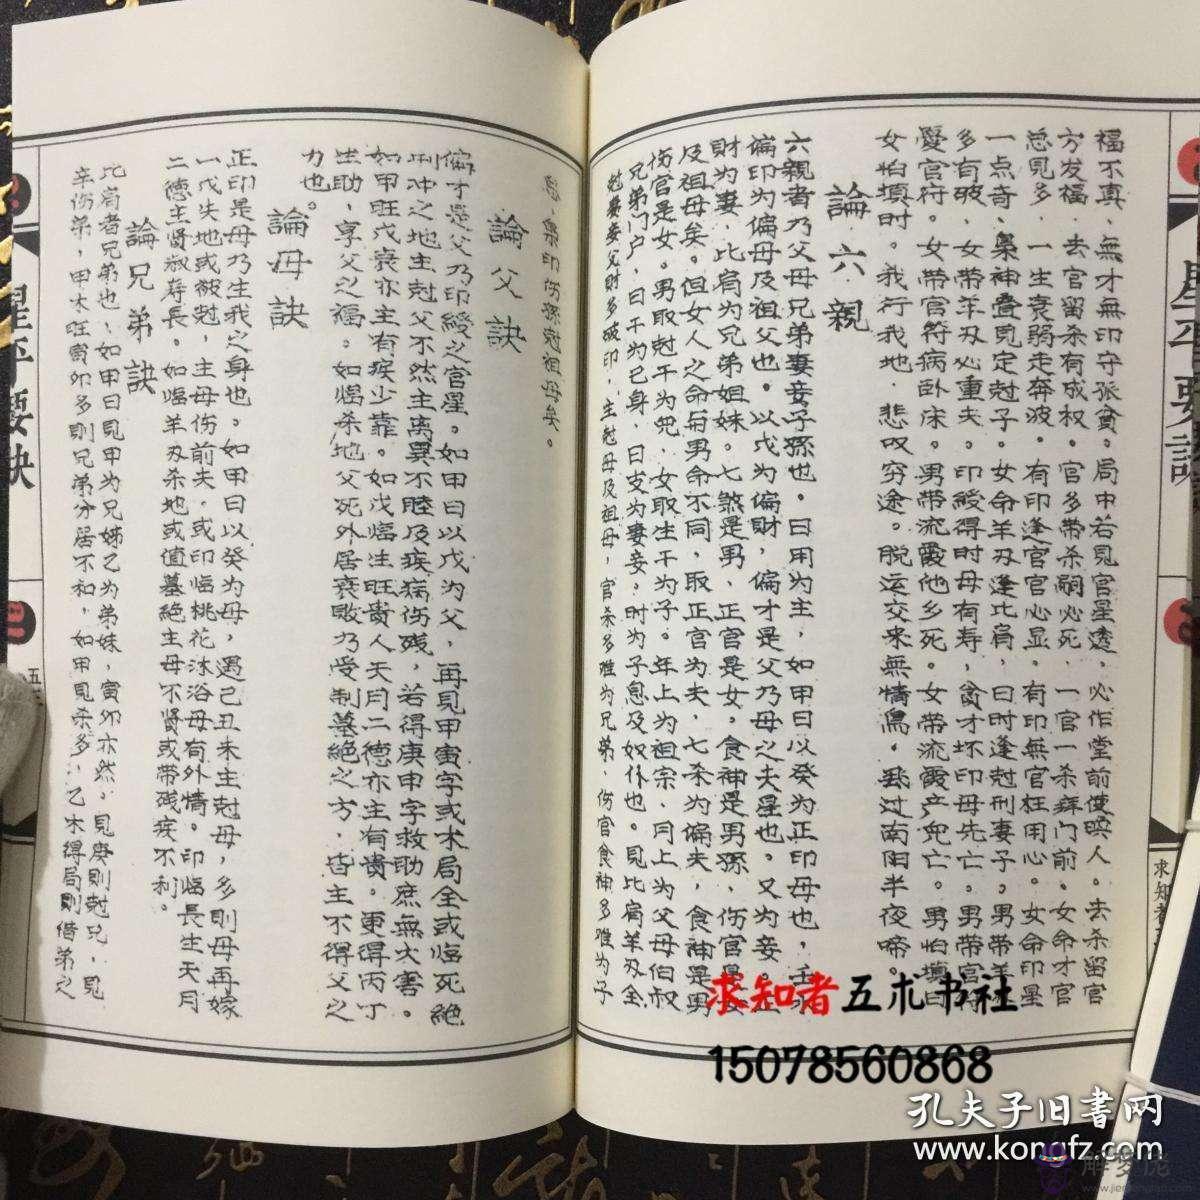 福不真，無才無印守張貧。局中若見官星透，必作堂前使喚人。去杀留官
方发福，去官留杀有成权。官多带杀嗣必死，一官一杀病门前。女命才官
总見多，一生衰弱走奔波。有印逢官官必显，有印無官枉用心。女命印星
一点奇，梟神叠見定尅子。女命羊刃逢比肩，日时逢尅刑妻子。男带羊
多有破，女带羊刃必重夫。印綬得时母有寿，貪才坏印母先亡。男带官符
愛官府。女带官符病卧床。男带流霞他乡死。女带流霞产兜亡。男怕填日
女怕填时。我行我地，悲叹穷途。脱运交来無情馬。飛过南阳半夜啼。
論六親
六親者乃父母兄弟妻妾子孫也。日用为主，如甲日以癸为正印母也，壬
偏印为偏母及祖父也。以戊为偏財，偏才是父乃母之夫星也。又为妾。
財为妻，比肩为兄弟姐妹。七煞是男，正官是女。食神是男孫，伤官是
及祖母矣。但女人之命与男命不同，取正官为夫，七杀为偏夫，食神是男
伤官是女。男取尅干为兜，女取生干为子。年上为祖宗，月上为父母伯叔
兄弟门户，日干为己身，日支为妻妾，时为子息及奴仆也。見比肩羊刃全
尅妻妾父財多破印，主尅母及祖母，官杀多难为兄弟，伤官食神多难为子
息，梟印伤孫尅祖母矣。
論父訣
偏才是父乃印綬之官星。如甲日以戊为父，再見甲寅字或木局全或临死絕
刑冲之地主尅父不然主离異不睦及疾病伤残，若得庚申字救助庶無大害。
如甲旺戊衰亦主有疾少靠。如戊临生旺貴人天月二德亦主有貴。更得丙丁
生助，享父之福。如临杀地父死外居衰敗乃受制墓絕之方，皆主不得父之
力也。
論母訣
正印是母乃生我之身也。如甲日以癸为母，遇己丑未主尅母，多則母再嫁
一戊失地或被尅，主母伤前夫，或印临桃花沐浴母有外情。印临長生天月
二德主賢淑寿長。如临羊刃杀地或值墓絕主母不賢或带残疾不利。
論兄弟訣
比肩者兄弟也，如甲日見甲为兄姊乙为弟妹，寅卯亦然，見庚則尅兄，見
辛伤弟，甲木旺寅卯多則兄弟分居不和，如甲見杀多，乙木得局則借弟之
星平要訣
求知者五术书社
15078560868
孔夫子旧書网
www.kongfz.com